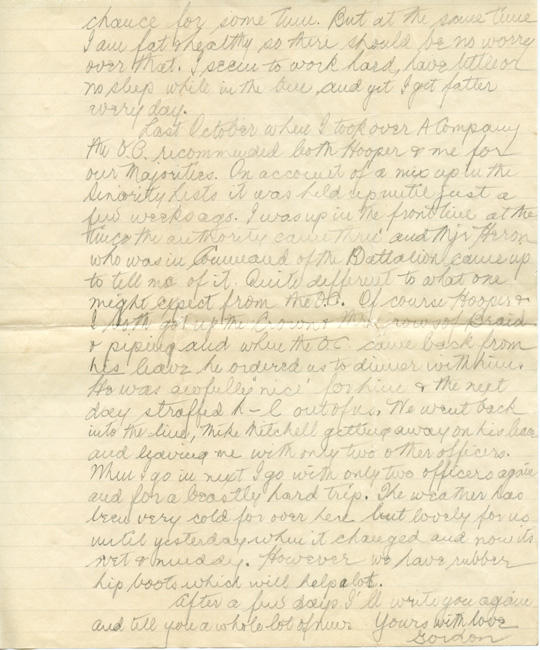 chance for some time. But at the same time
I am fat & healthy so there should be no worry
over that. I seem to work hard, have little or
no sleep while in the line, and yet I get fatter
every day.
Last October when I took over A Company
the O.C. recommended both Hooper & me for
our Majorities. On account of a mix up in the
Seniority Lists it was held up until just a
few weeks ago. I was up in the front line at the
time the authority came thru' and Mjr Heron
who was in Command of the Battalion came up
to tell me of it. Quite different to what one
might expect from the O.C. Of course Hooper &
I both got up the Crown & three rows of Braid
& piping and when the OC came back from
his leave he ordered us to dinner with him.
He was awfully 'nice' for him & the next
day straffed h-l out of us. We went back
into the line, Mike Mitchell getting away on his leave
and leaving me with only two other officers.
When I go in next I go with only two officers again
and for a beastly hard trip. The weather has
been very cold for over here but lovely for us
until yesterday when it changed and now its
wet & muddy. However we have rubber
hip boots which will help alot.
After a few days I'll write you again
and tell you a whole lot of news. Yours with love
Gordon